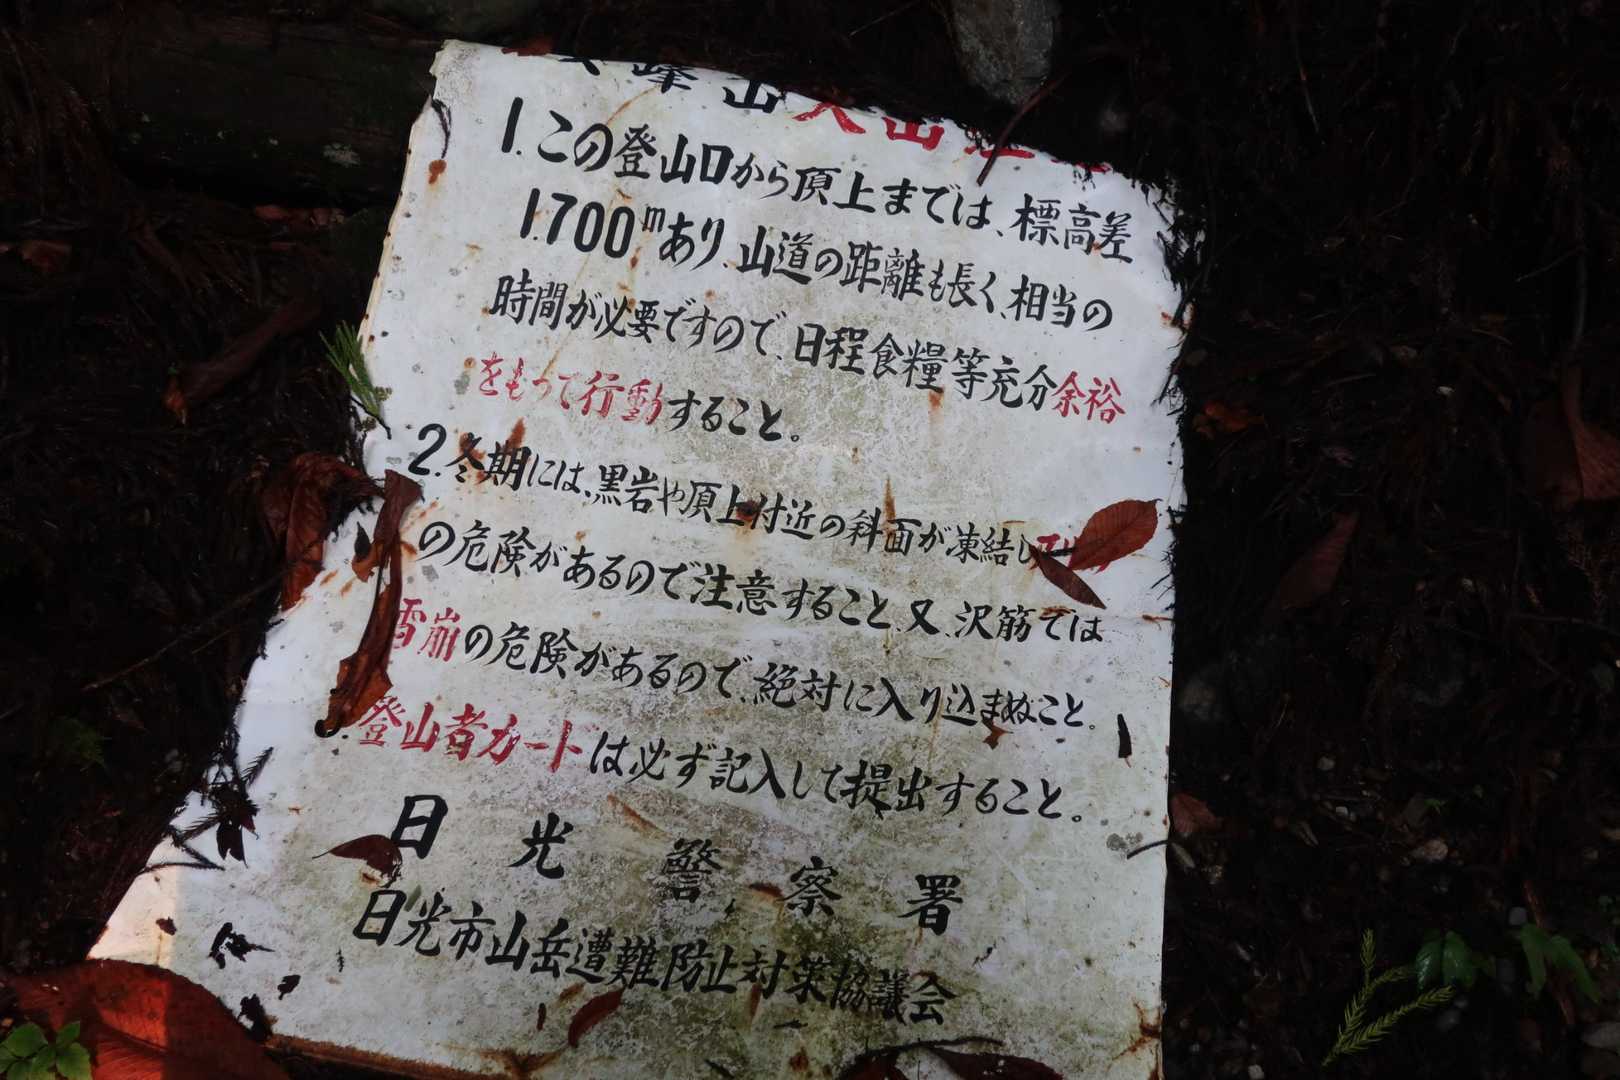 峰山入山
1.この登山口から頂上までは、標高差
1.700mあり、山道の距離も長く、相当の
時間が必要ですので、日程食糧等充分余裕
をもって行動すること。
2.冬期には、黒岩や頂上付近の斜面が凍結し
の危険があるので注意すること、又、沢筋では
雪崩の危険があるので、絶対に入り込まぬこと。
登山者カートは必ず記入して提出すること。
日光警察署
日光市山岳遭難防止対策協議会